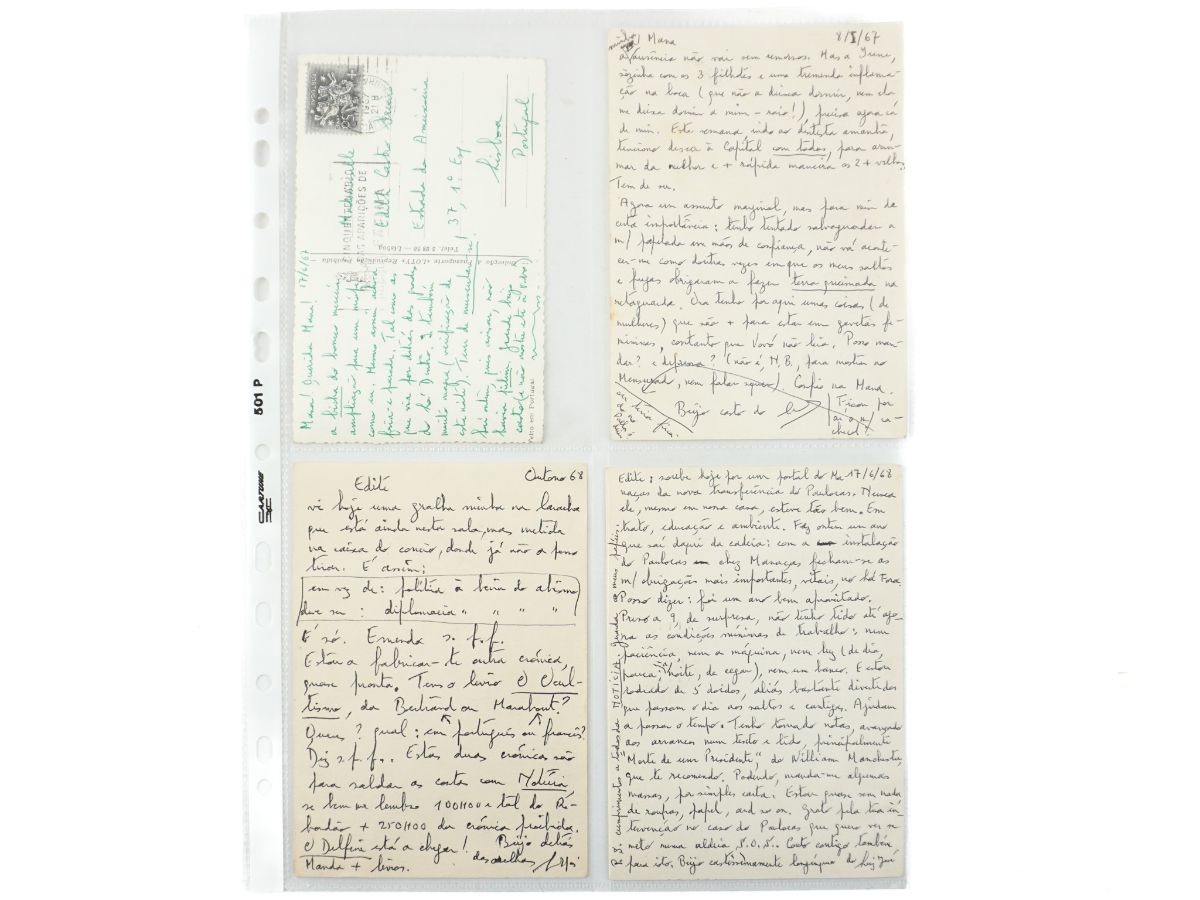 Mademoiselle
Edith Castro
Estrada da Ameixoeira
37, 1º Esq.
Lisboa
Portugal
APARIÇÕES DE
Mana! Querida Mana! 17/6/67
a ficha do homem
ampliação para um
como eu. Mesmo assim
fôra-a parede. Tal como a
que me pôr detrás das grades
do lá Dentro. E também
muito magra (verificação de
esta noite). Tem de
foi ontem, quis avisar, não
havia
Edição e Transporte «LOTY» Reprodução Proibida
Foto em Portugal
Mana 8/5/67
ausência não vai sem remorsos. Mas a Irene,
sòzinha com os 3 filhotes e uma tremenda inflama-
ção na boca (que não a deixa dormir, nem ela
me deixa dormir a mim – raio!), precisa agora cá
de mim. Esta semana, indo ao dentista amanhã,
tenciono descer à Capital com todos, para arru-
mar da melhor e + rápida maneira os 2 + velhos.
Tem de ser.
Agora um assunto marginal, mas para mim de
certa importância: tenho tentado salvaguardar a
m/ papelada em mãos de confiança, não vá aconte-
cer-me como doutras vezes em que os meus saltos
e fugas obrigaram a fazer terra queimada na
retaguarda. Ora tenho por aqui umas coisas (de
mulheres) que são + para estar em gavetas fe-
mininas, contanto que Vovó não leia. Posso man-
dar? e depressa? (não é, N.B., para mostrar no
Mensurad, nem falar sequer). Confio na Mana.
Beijo casto do
Ficou por
aí o m/ ca-
checol?
501 P
Edite Outono 68
vi hoje uma gralha minha na laracha
que está ainda nesta sala, mas metida
na caixa do correio, donde já não a posso
tirar. É assim:
em vez de: política à beira do abismo
deve ser: diplomacia " " " "
É só. Emenda s.f.f.
Estou a fabricar-te outra crónica,
quase pronta. Tens o livro O Ocul-
tismo, da Bertrand ou Marabout?
Queres? qual: em português ou francês?
Diz s.f.f.. Estas duas crónicas são
para saldar as contas com Notícia,
se bem me lembro 100$00 e tal do Ri-
bardão + 250$00 da crónica proibida.
O Delfim está a chegar! Beijo detrás
das orelhas
Manda + livros.
Edite: soube hoje por um postal do Ma- 17/6/68
naças da nova transferência do Paulocas. Nunca
ele, mesmo em nossa casa, esteve tão bem. Em
trato, educação e ambiente. Faz ontem um ano
que saí daqui da cadeia: com a instalação
do Paulocas chez Manaças fecham-se as
m/ obrigações mais importantes, vitais, no há Fora.
Posso dizer: foi um ano bem aproveitado.
Preso a 9, de surpresa, não tenho tido até ago-
ra as condições mínimas de trabalho: nem
paciência, nem a máquina, nem luz (de dia,
pouca; à noite, de cegar), nem um banco. E estou
rodeado de 5 doidos, aliás bastante divertidos
que passam o dia aos saltos e cantigas. Ajudam
a passar o tempo. Tenho tomado notas, avançado
aos arrancos num texto e lido, principalmente
"Morte de um Presidente", do William Manchester,
que te recomendo. Podendo, manda-me algumas
massas, por simples carta: Estou quase sem nada
de roupas, papel, and so on. Grato pela tua in-
tervenção no caso do Paulocas que quero ver se
meto numa aldeia S.O.S.. Conto contigo também
para isto. Beijo castíssimamente longínquo do Luiz José